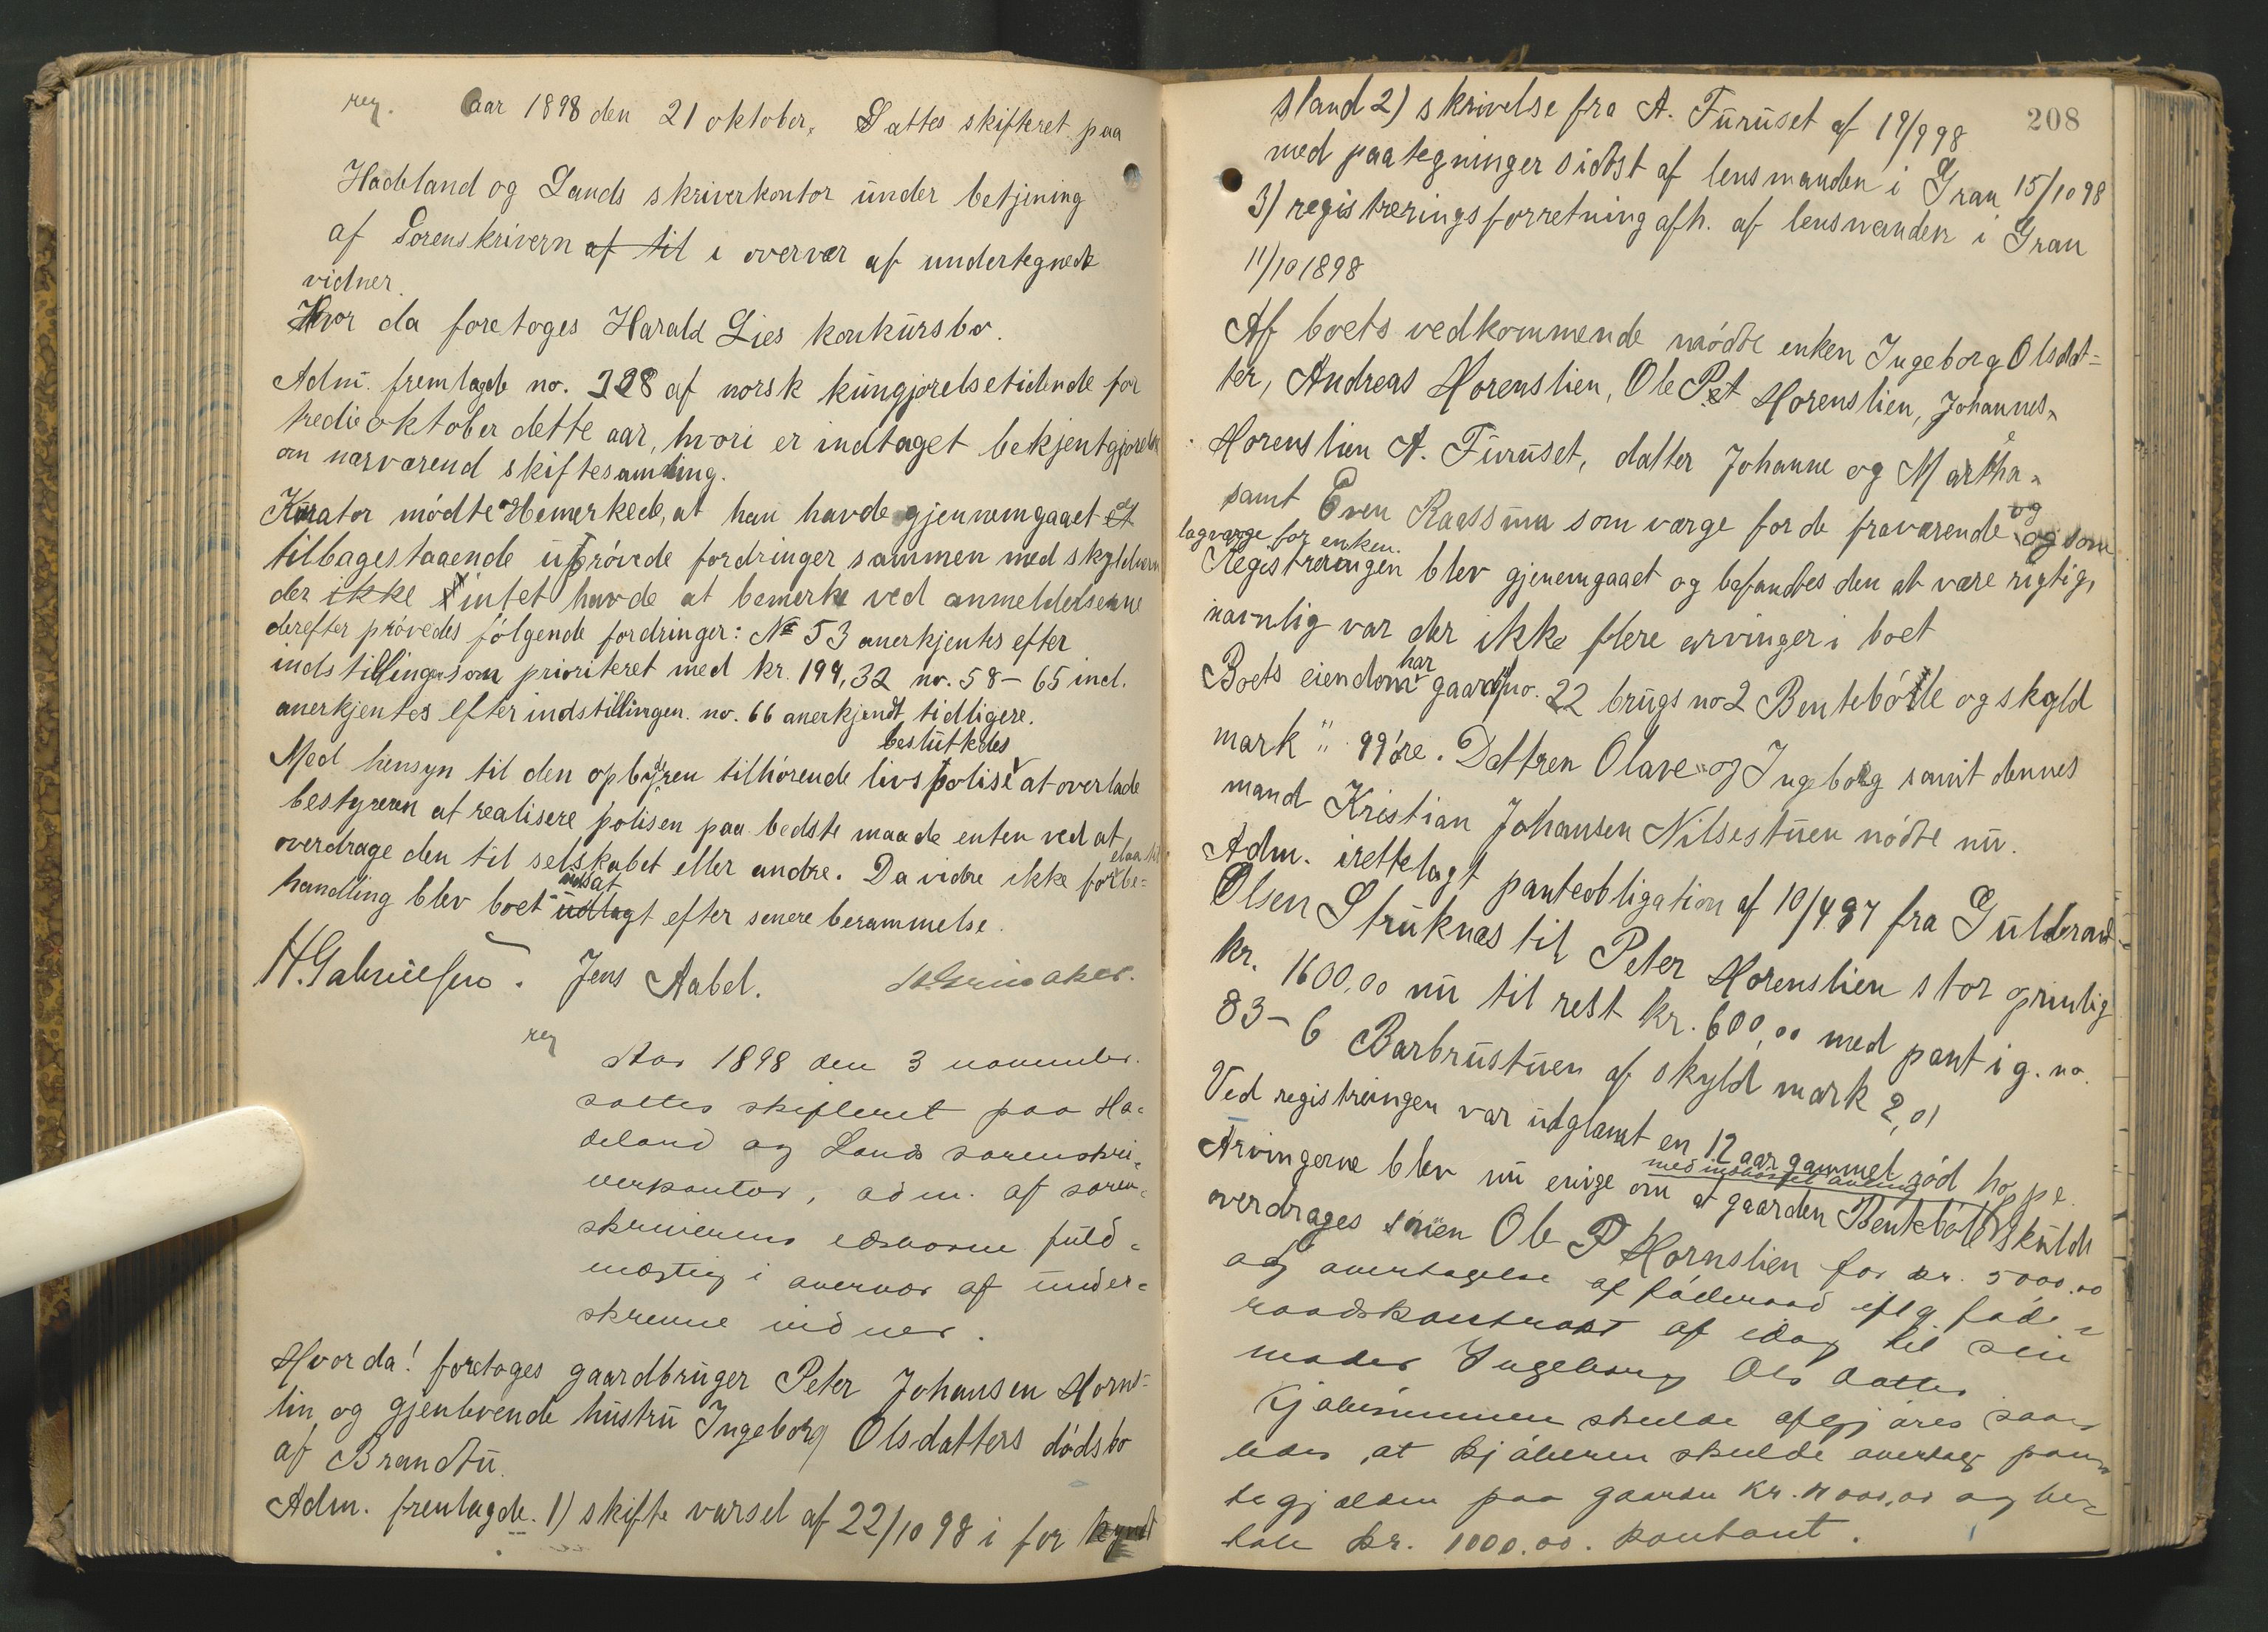 reg. Aar 1898 den 21 oktober, Sattes skifteret paa
Hadeland og Lands skriverkontor under betjening
af Sorenskrivern af til i overvær af undertegnede
vidner.
Hvor da foretoges Harald Lies konkursbo.
Adm. fremlagde no. 228 af norsk kungjørelsetidende for
tredie oktober dette aar, hvori er indtaget bekjentgjørelse
om nærværend skiftesamling.
Kurator mødte bemerkede, at han havde gjennemgaaet
tilbagestaaende uprøvede fordringer sammen med skyldnern
der ikke intet havde at bemerke ved anmeldelserne
derefter prøvedes følgende fordringer: No 53 anerkjentes efter
indstillingen som prioriteret med kr. 199,32 no. 58 – 65 incl.
anerkjentes efter indstillingen. no. 66 anerkjendt tidligere.
besluttedes
Med hensyn til den opbyderen tilhørende livspolise at overlade
bestyreren at realisere polisen paa bedste maade enten ved at
overdrage den til selskabet eller andre. Da videre ikke forelaa til be=
udsat
handling blev boet udlagt efter senere berammelse.
H. Gabrielsen. Jens Aabel.
reg
Aar 1898 den 3 november.
sattes skifteret paa Ha=
deland og Lands sorenskri=
verkontor, adm. af soren=
skriverens edsvorne fuld=
mægtig i overvær af under=
skrevne vidner.
Hvor da! foretoges gaardbruger Peter Johansen Horns=
lin og gjenlevende hustru Ingeborg Olsdatters dødsbo
af Brandbu.
Adm. fremlagde. 1) skifte varsel af 22/10 98 i for kyndt
208
stand 2) skrivelse fra A. Furuset af 19/9 98
med paategninger sidst af lensmanden i Gran 15/10 98
3) registreringsforretning afh. af lensmanden i Gran
11/10 1898
Af boets vedkommende mødte enken Ingeborg Olsdat=
ter, Andreas Horenslien, Ole Pet Horenslien, Johannes
Horenslien A. Furuset, datter Johanne og Marthe
samt Even Raassum som værge for de fraværende og og som
lagværge for enken.
Registreringen blev gjenemgaaet og befandtes den at være rigtig,
navnlig var der ikke flere arvinger i boet
Boets eiendom har gaards no. 22 brugs no 2 Bentebøle og skyld
mark " 99 øre. Dattren Olave og Ingeborg samt dennes
mand Kristian Johansen Nilsestuen mødte nu.
Adm. irettelagt panteobligation af 10/4 87 fra Guldbrand
Olsen Struknæs til Peter Horenslien stor oprinlig
kr. 1600,00 nu til rest kr. 600,00 med pant i g. no.
83 – 6 Barbrustuen af skyld mark 2,01
Ved registreingen var udglemt en 12 aar gammel rød hoppe.
Arvingerne blev nu enige om at gaarden Bentebøle skulde
overdrages sønen Ole P Hornslien for kr. 5000.00
og overtagelse af føderaad iflg. føde=
raadskontrakt af idag til sin
moder Ingeborg Ols datter
Kjøbesummen skulde afgjøres saa=
ledes, at kjøberen skulde overtage pan=
tegjælden paa gaarden kr. 4000,00 og be=
tale kr. 1000.00. kontant.